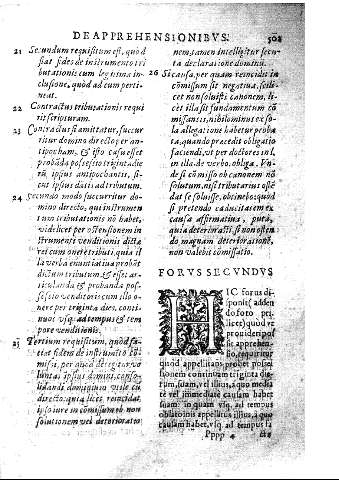 DE APREHENSIONIBVS. 502
21 Secundum requisitum est, quòd
fiat fides de instrumento tri
butationis cum legitima in-
clusione, quòd ad eum perti-
neat.
22 Contractus tributationis requi
rit scripturam.
23 Contractus si amittatur, succur
ritur domino directo, per an-
tipocham, & isto casu esset
probada possessio triginta die
rū, ipsius antipochantis, si-
cut ipsius dati ad tributum.
24 Secundo modo succurritur do-
mino directo, qui instrumen-
tum tributationis nō habet,
videlicet per ostensionem in
strumenti venditionis dictæ
rei cum onere tributi, quia il
la verba enuntiatiua probāt
dictum tributum & esset ar-
ticulanda & probanda pos-
sessio venditoris cum illo o-
nere per triginta dies, conti-
nuos vsq. ad tempus & tem
pore venditionis.
25 Tertium requisitum, quod fa-
ciat fidem de instrumēto cō-
missi, per quod detegitur vo
luntas ipsius domini, conso-
lidandi dominium vtile cū
directo, quia licet, reincidat,
ipso iure in cōmissum ob non
solutionem vel deterioratio
nem, tamen intelligitur secu-
ta declaratione dominii.
26 Si causa, per quam reincidit in
cōmissum sit negatiua, scili-
cet non soluisti canonem, li-
cet illa sit fundamentum cō
missantis, nihilominus ex so-
la allegatione habetur proba
ta, quando præcedit obligatio
faciendi, vt per doctores in l.
in illa de verbo. oblig. Vn-
de si cōmisso ob canonem nō
solutum, nisi tributarius ostē
dat se soluisse, obtinebo: quod
si pretendo caducitatem ex
causa affirmatiua, puta,
quia deteriorasti, si non osten
do magnam deterioratione,
non valebit comissatio.
FORVS SECVNDVS
HIC forus di-
sponit (adden
do foro pri.
licet) quod vt
prouideri pos
sit apprehen-
sio, requiritur
quod appellitans probet posses
sionem continuam triginta die-
rum, suam, vel illius, à quo media
tè vel immediatè causam habet
suam: in quam vsq. ad tempus
oblationis appellitus illius, a quo
causam habet, vsq. ad tempus
Pppp 4